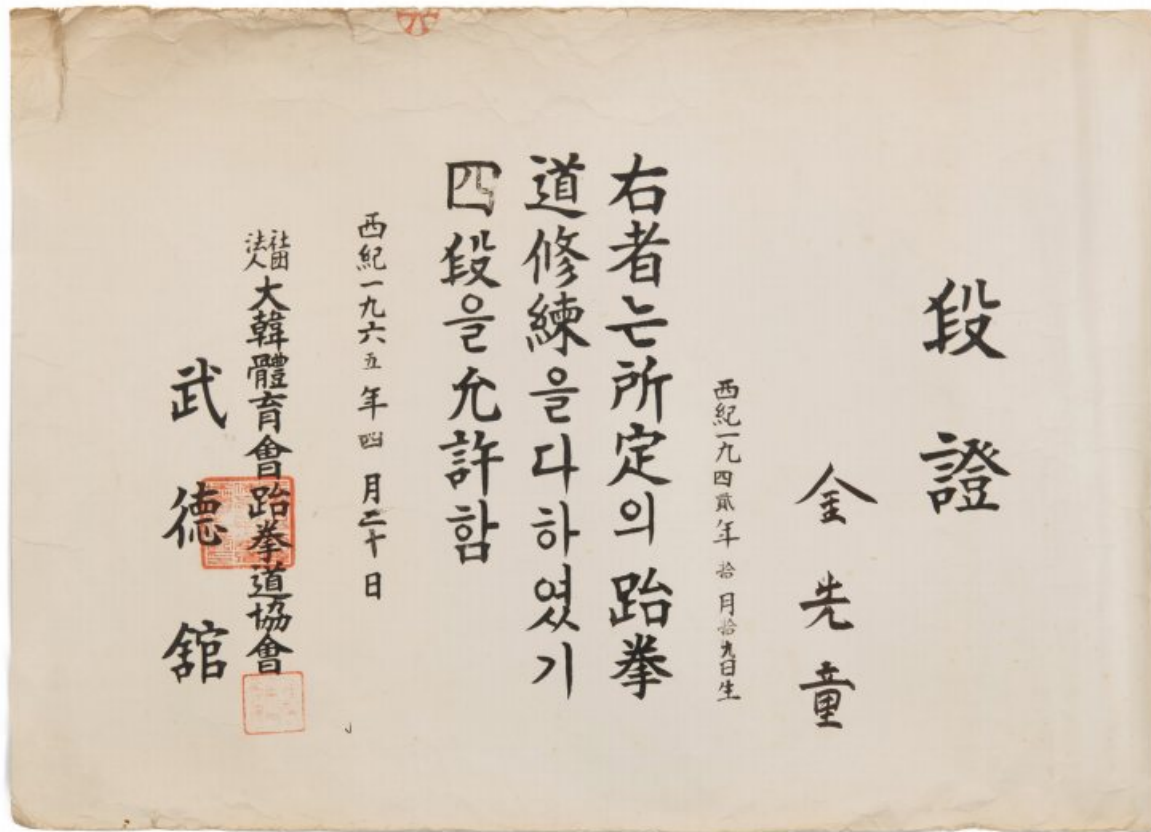 段證
金先童
西紀一九四貳年拾月拾九日生
右者는所定의跆拳
道修練을다하였기
四段을允許함
西紀一九六五年四月二十日
社団
法人
大韓體育會跆拳道協會
武德舘